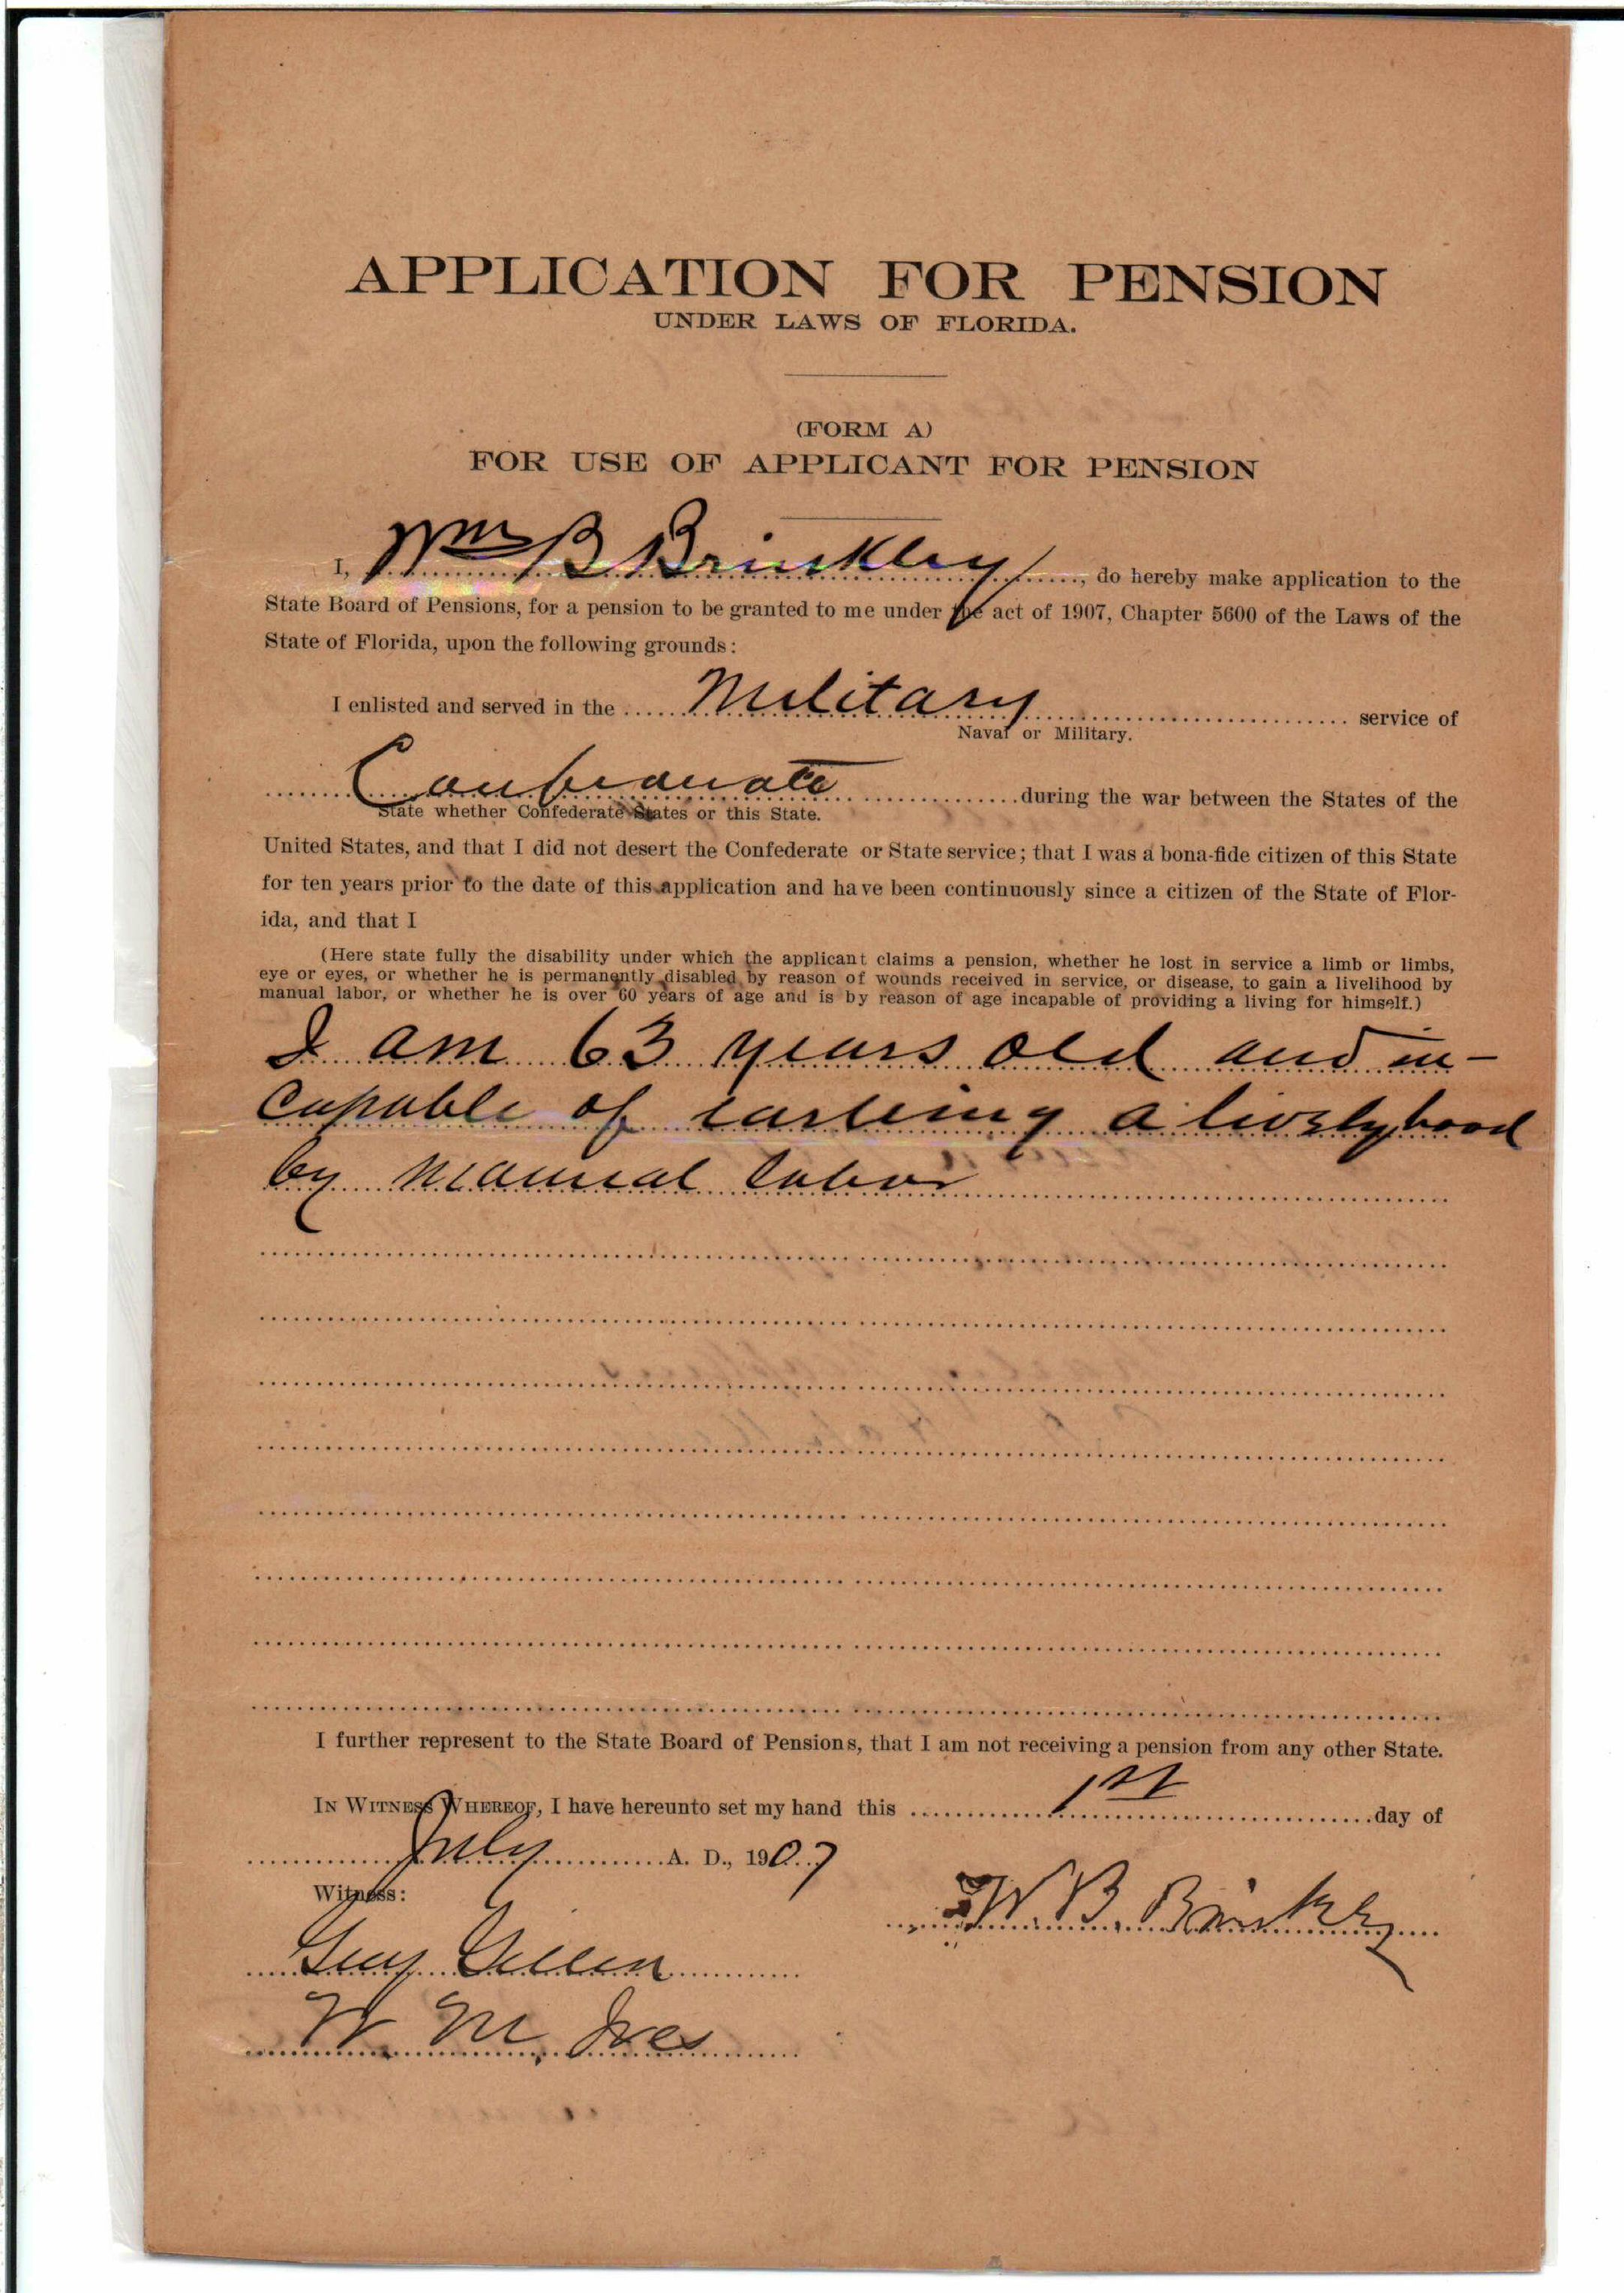 APPLICATION FOR PENSION
UNDER LAWS OF FLORIDA.
(FORM A)
FOR USE OF APPLICANT FOR PENSION
I, Wm B Brinkley, do hereby make application to the
State Board of Pensions, for a pension to be granted to me under the act of 1907, Chapter 5600 of the Laws of the
State of Florida, upon the following grounds:
I enlisted and served in the Military service of
Naval or Military.
Confederate during the war between the States of the
State whether Confederate States or this State.
United States, and that I did not desert the Confederate or State service; that I was a bona-fide citizen of this State
for ten years prior to the date of this application and have been continuously since a citizen of the State of Flor-
ida, and that I
(Here state fully the disability under which the applicant claims a pension, whether he lost in service a limb or limbs,
eye or eyes, or whether he is permanently disabled by reason of wounds received in service, or disease, to gain a livelihood by
manual labor, or whether he is over 60 years of age and is by reason of age incapable of providing a living for himself.)
I am 63 years old and in-
capable of a livelyhood
by manual labor
I further represent to the State Board of Pensions, that I am not receiving a pension from any other State.
IN WITNESS WHEREOF, I have hereunto set my hand this 1st day of
July A. D., 1907
Witness:
W. B. Brinkley
Guy Gillen
W. M. Ives